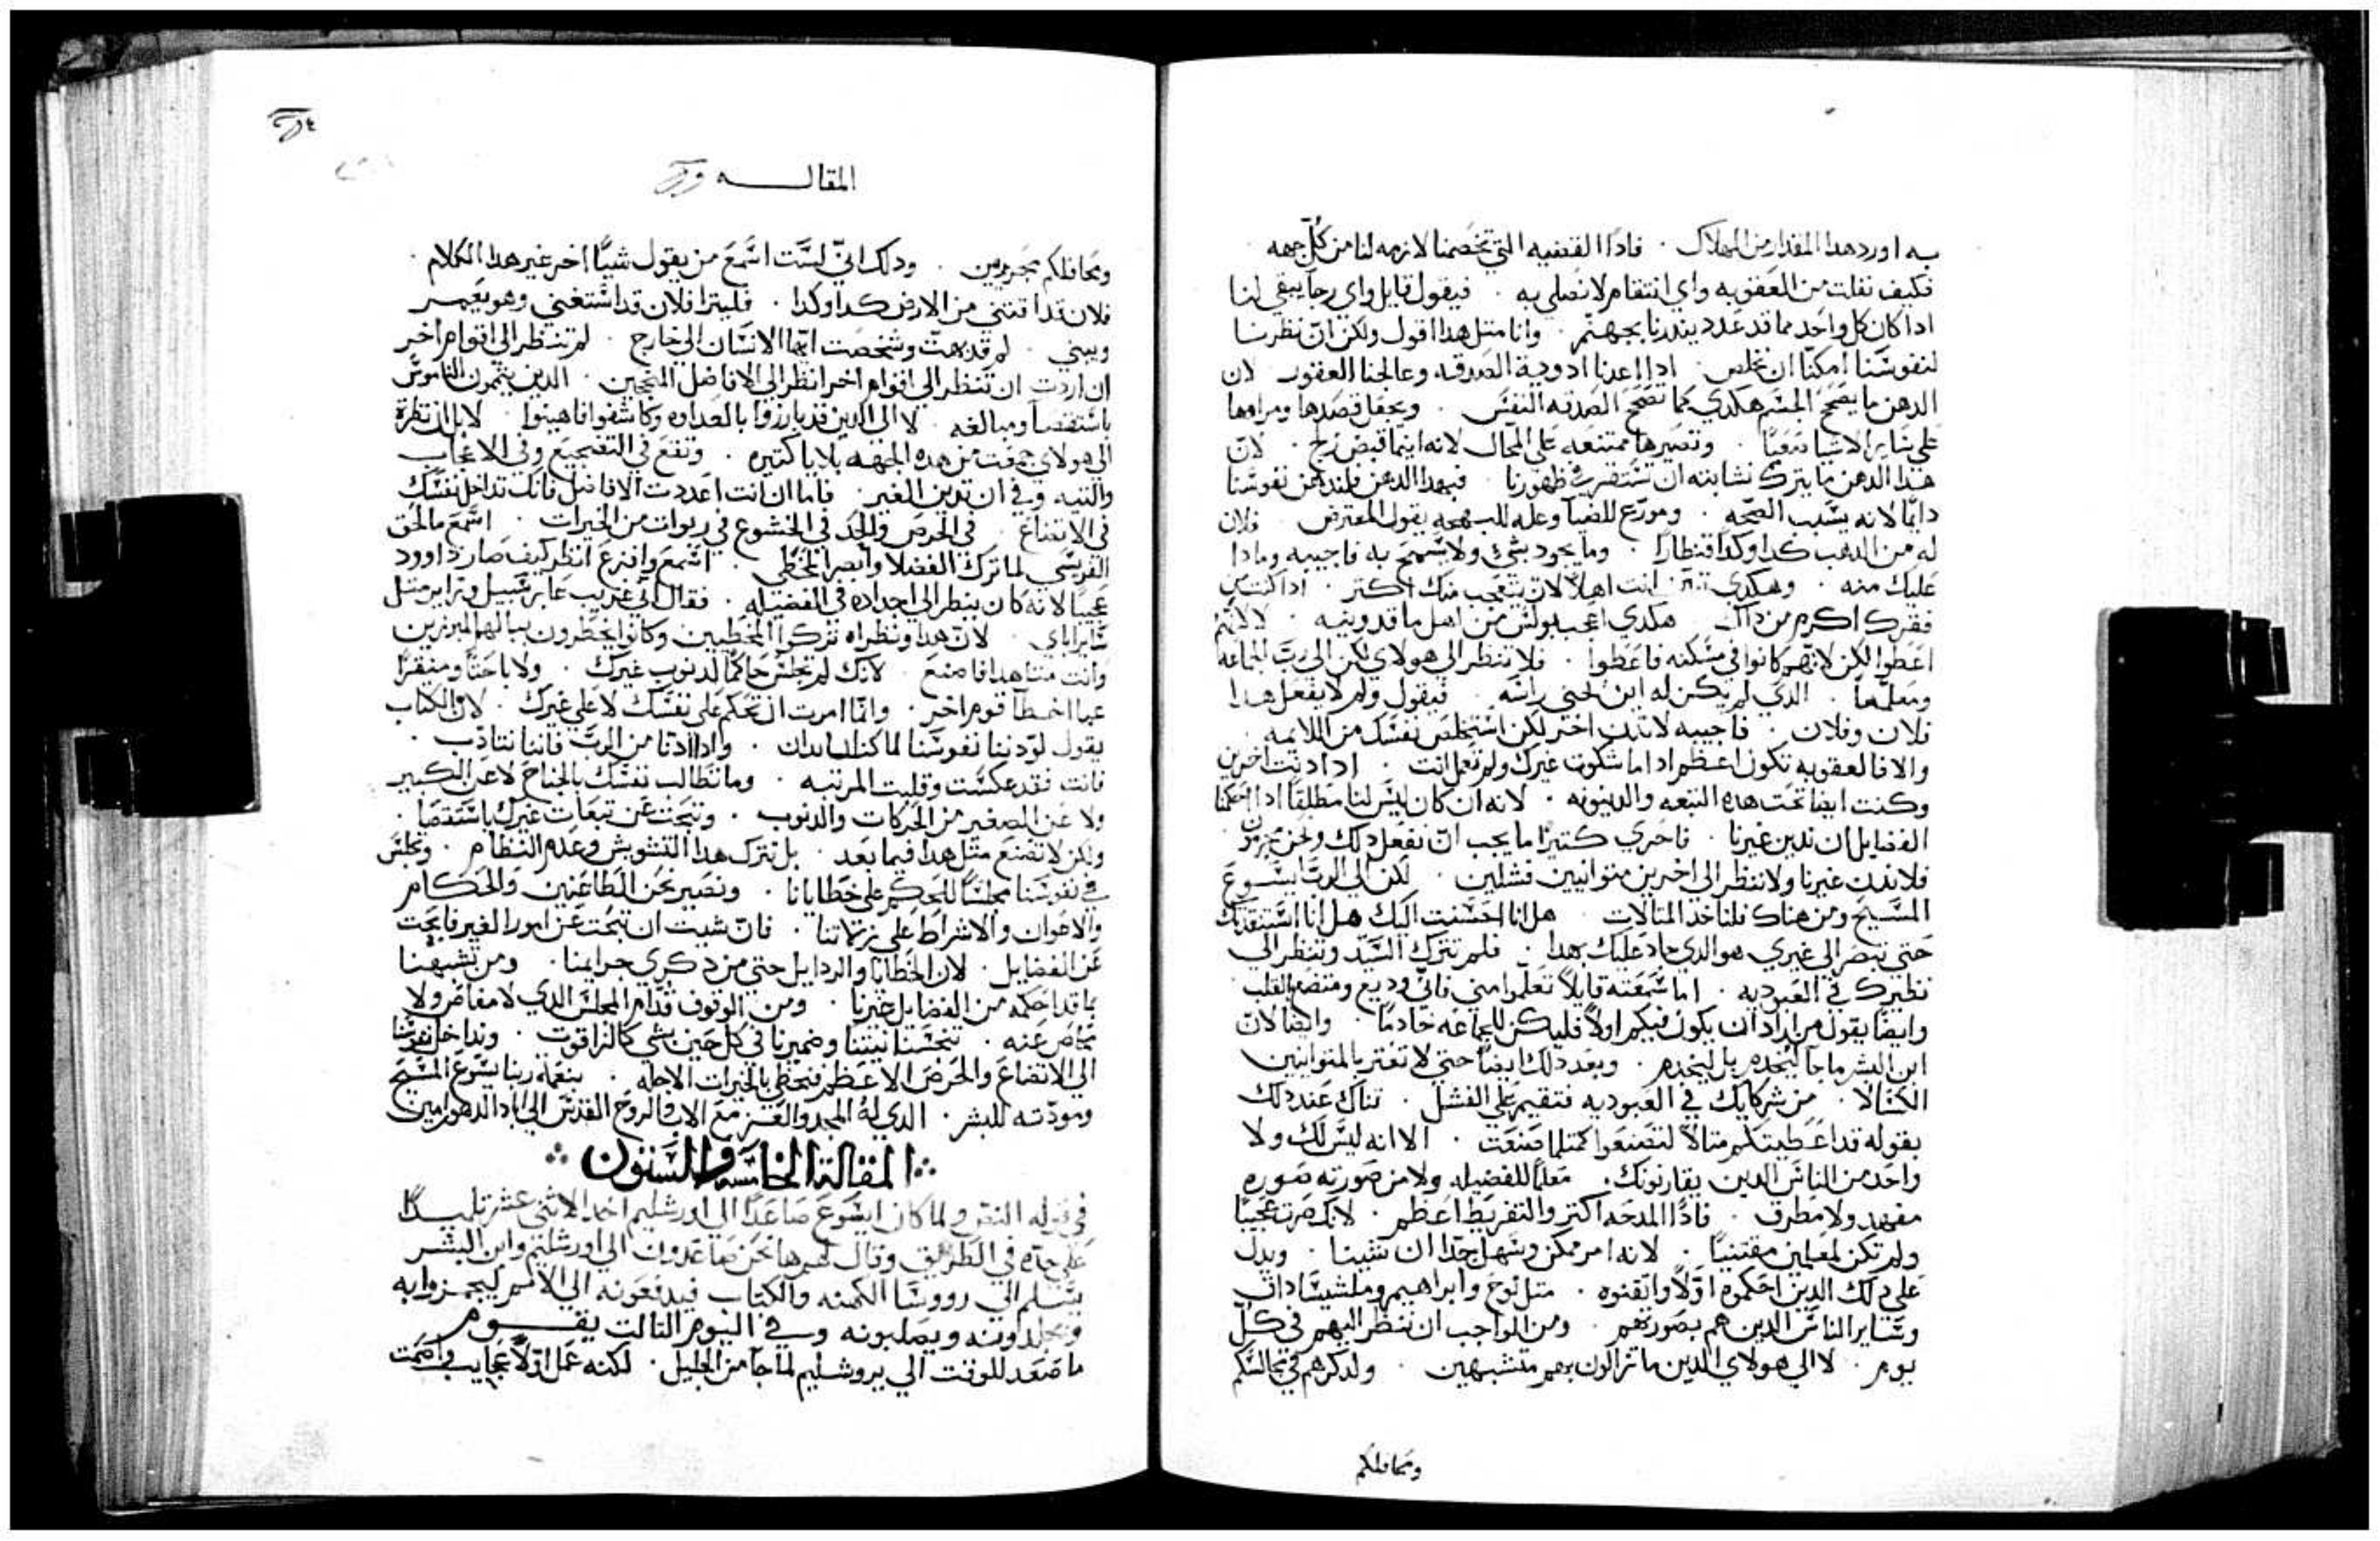 به اورد هدا المقدار من الهلاك ٠ فاداً القضيه التي تخصمنا لازمه لنا من كل جهه
فكيف نفلت من العقوبه واي انتقام لا نصلى به ٠ فيقول قايل واي رجا يبقي لنا
ادا كان كل واحد مما قد عدد يتهددنا بجهنم ٠ وانا مثل هدا اقول ولكن ان نظرنا
لنفوسنا امكنا ان نخلص ٠ ادا اعدنا ادوية الصدقه وعالجنا العقوبه لان
الدهن ما يصحح الجسم هكدي كما تصحح الصدقه النفس ٠ وتجعل قصدها ومرامها
علي ساير الاشيا قويا ٠ وتصيرها ممتنعه علي المحال لانه اينما قبض زلج ٠ لان
هدا الدهن ما يترك نشابته ان تستقر في ظهورنا ٠ فبهدا الدهن فلندهن نفوسنا
دايمًا لانه يسبب الصحه ٠ ومودع للضيا وعله للبهجه يقول المعترض ٠ فلان
له من الدهب كدا وكدا قنطارًا ٠ وما يجود بشي ولا يسمح به فاجيبه وما دا
عليك منه ٠ وهكدي انت اهلاً لان يتعجب منك اكتر ٠ ادا كنت في
فقرك اكرم من داك ٠ هكدي اعجب بولس من اهل ماقدونيه ٠ لا لانهم
اعطوا لكن لانهم كانوا في مسكنه فاعطوا ٠ فلا تنظر الي هولاي لكن الي رب الجماعه
ومعلمها ٠ الدي لم يكن له اين يحني راسه ٠ فيقول ولم لا يفعل هدا
فلان وفلان ٠ فاجيبه لا تدين اخر لكن استخلص نفسك من اللايمه ٠
والا فالعقوبه تكون اعظم ادا ما شكوت غيرك ولم تعمل انت ٠ ادا دنت اخرين
وكنت ايضا تحت هده التبعه والدينونه ٠ لانه ان كان ليس لنا مطلقًا ادا احكمنا
الفضايل ان ندين غيرنا ٠ فاحري كتيرًا ما يجب ان نفعل دلك ونحن مجرمون
فلا ندين غيرنا ولا ننظر الي اخرين متوانيين فشلين ٠ لكن الي الرب ايسوع
المسيح ومن هناك فلناخد المتالات ٠ هل انا احسنت اليك هل انا استنقدتك
حتي تبصر الي غيري هو الدي جاد عليك بهدا ٠ فلم تترك السيد وتنظر الي
نظيرك في العبوديه ٠ اما سمعته قايلاً تعلموا مني فاني وديع ومتضع بالقلب ٠
وايضا يقول من اراد ان يكون فيكم اولاً فليكن للجماعه خادمًا ٠ وايضا لان
ابن البشر ما جا ليُخدم بل ليخدم ٠ وبعد دلك ايضا حتي لا تغتر بالمتوانيين
الكسالا ٠ من شركايك في العبوديه فتقيم علي الفشل ٠ تناك عند دلك
بقوله قد اعطيتكم متالاً لتصنعوا كمتلما صنعت ٠ الا انه ليس لك ولا
واحد من الناس الدين يقارنونك ٠ معلمًا للفضيله ولا من صورته صوره
مفيد ولا مطرف ٠ فادًا المدحه اكتر والتقريظ اعظم ٠ لانك صرت عجيبًا
ولم تكن لمعلمين مقتنيًا ٠ لانه امر ممكن وسهل جدًا ان شينا ٠ ويدل
علي دلك الدين احكموه اولاً واتقنوه ٠ متل نوح وابراهيم وملشيساداق
وساير الناس الدين هم بصورتهم ٠ ومن الواجب ان ننظر اليهم في كل
يوم ٠ لا الي هولاي الدين ما تزالون بهم متشبهين ٠ ولدكرهم في مجالسكم
ومحافلكم
المقاله
ومحافلكم مجريين ٠ ودلك اني لست اسمع من يقول شيًا اخر غير هدا الكلام ٠
فلان قد اقتني من الارض كدا وكدا ٠ فليترا فلان قد استغني وهو يعمر
ويبني ٠ لم قد بهت وشخصت ايها الانسان الي خارج ٠ لم تنظر الي اقوام اخر
ان اردت ان تنظر الي اقوام اخر انظر الي الافاضل المنجحين ٠ الدين يتممون الناموس
باستقصا ومبالغه ٠ لا الي الدين قد بارزوا بالعداوه وكاشفوا فاهينوا ٠ لا بل ان نظرت
الي هولاي جمعت من هده الجهه بلايا كتيره ٠ وتقع في التضجيع وفي الاعجاب
والتيه وفي ان تدين الغير ٠ فاما ان انت اعددت الافاضل فانك تداخل نفسك
في الاتضاع ٠ في الحرص والجد في الخشوع في ربوات من الخيرات ٠ اسمع ما لحق
الفريسي لما ترك الفضلا وابصر المخطي ٠ اسمع وافزع انظر كيف صار داوود
عجيبًا لانه كان ينظر الي اجداده في الفضيله ٠ فقال اني غريب عابر سبيل وزاير متل
ساير اباي ٠ لان هدا ونظراه تركوا المخطيين وكانوا يخطرون ببالهم المبرزين
وانت متل هدا فاصنع ٠ لانك لم تجلس حاكمًا لدنوب غيرك ٠ ولا باحتًا ومنقرًا
عما اخطا قوم اخر ٠ وانما امرت ان تحكم علي نفسك لا علي غيرك ٠ لان الكتاب
يقول لو دننا نفوسنا لما كنا ندان ٠ وادا ادنا من الرب فاننا نتادب ٠
فانت فقد عكست وقلبت المرتبه ٠ وما تطالب نفسك بالجناح لا عن الكبير
ولا عن الصغير من الحركات والدنوب ٠ وتبحت عن تبعات غيرك باستقصا ٠
ولكن لا تصنع متل هدا فيما بعد ٠ بل نترك هدا التشويش وعدم النظام ٠ ونجلس
في نفوسنا مجلسًا للحكم علي خطايانا ٠ ونصير نحن الطاعنين والحكام
والاعوان والاشراط علي زلاتنا ٠ فان شيت ان تبحت عن امور الغير فابحت
عن الفضايل ٠ لان الخطايا والردايل حتي من دكري جرايمنا ٠ ومن تشبهنا
بما قد احكمه من الفضايل غيرنا ٠ ومن الوقوف قدام المجلس الدي لا مفاص ولا
مناص عنه ٠ تنخسنا نيتنا وضميرنا في كل حين بشي كالزاقوت ٠ ونداخل نفوسنا
الي الاتضاع والحرص الاعظم فنحظي بالخيرات الاجله ٠ بنعمة ربنا يسوع المسيح
ومودته للبشر ٠ الدي له المجد والعز مع الاب والروح القدس الي اباد الدهور امين
المقالة الخامسه والستون
في قوله النص ولما كان ايسوع صاعدًا الي اورشليم اخد الاثني عشر تلميدًا
علي حده في الطريق وقال لهم ها نحن صاعدون الي اورشليم وابن البشر
يسلم الي رووسا الكهنه والكتاب فيدفعونه الي الامم ليهزوا به
ويجلدونه ويصلبونه وفي اليوم التالت يقوم
ما صعد للوقت الي يروشليم لما جا من الجليل ٠ لكنه عمل اولاً عجايب واصمت